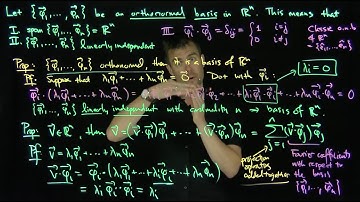 Let {φ⃗₁, ..., φ⃗ₙ} be an orthonormal basis in ℝⁿ. This means that
I. span{φ⃗₁, ..., φ⃗ₙ} = ℝⁿ
II. {φ⃗₁, ..., φ⃗ₙ} linearly independent
III. φ⃗ᵢ · φ⃗ⱼ = δᵢⱼ = { 1 i=j
0 i≠j
Prop: {φ⃗₁, ..., φ⃗ₙ} orthonormal, then it is a basis of ℝⁿ
Pf: Suppose that λ₁φ⃗₁ + ... + λₙφ⃗ₙ = 0⃗. Dot with φ⃗ᵢ:
λᵢ = 0
{φ⃗₁, ..., φ⃗ₙ} linearly independent with cardinality n → basis of ℝⁿ
Prop: v⃗ ∈ ℝⁿ, then v⃗ = (v⃗·φ⃗₁)φ⃗₁ + ... + (v⃗·φ⃗ₙ)φ⃗ₙ = Σ (v⃗·φ⃗ᵢ)φ⃗ᵢ
Pf: v⃗ = λ₁φ⃗₁ + ... + λₙφ⃗ₙ
v⃗·φ⃗ᵢ = φ⃗ᵢ·(λ₁φ⃗₁ + ... + λᵢφ⃗ᵢ + ... + λₙφ⃗ₙ)
= λᵢ φ⃗ᵢ·φ⃗ᵢ = λᵢ
projection
added together
Fourier coefficients
with respect to
the basis
{φ⃗₁, ..., φ⃗ₙ}